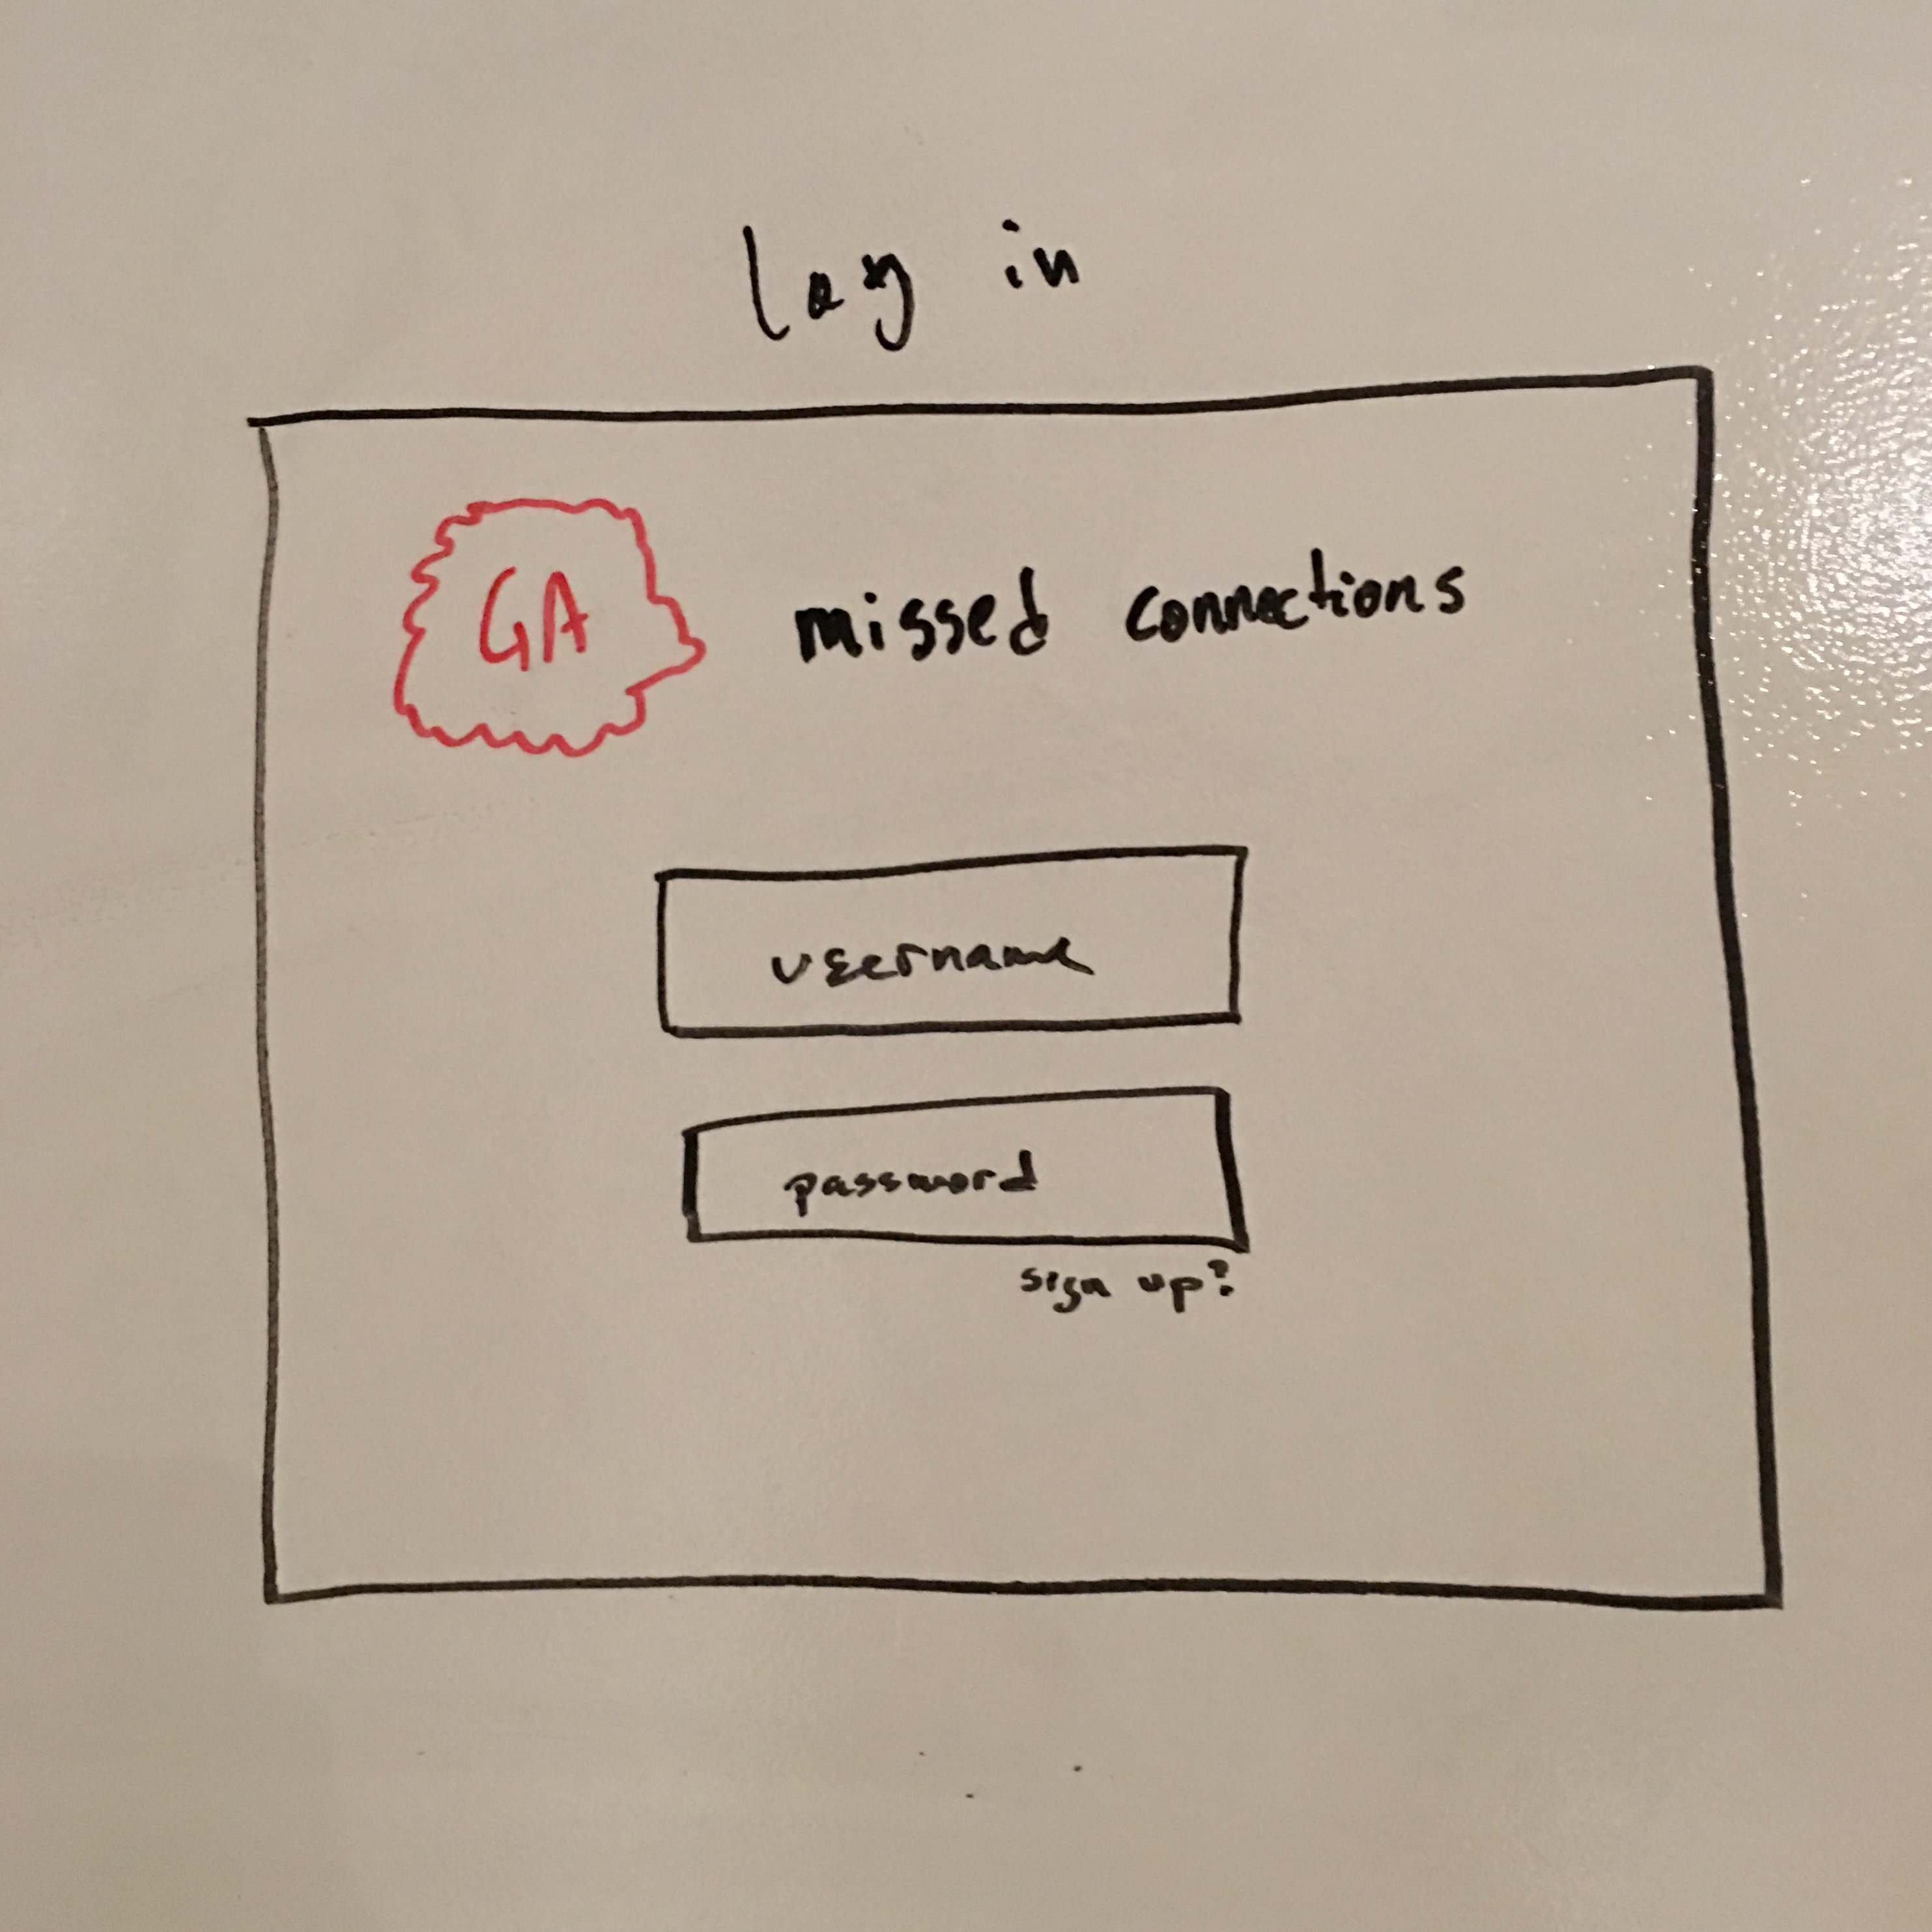 log in
GA missed connections
username
password
sign up?